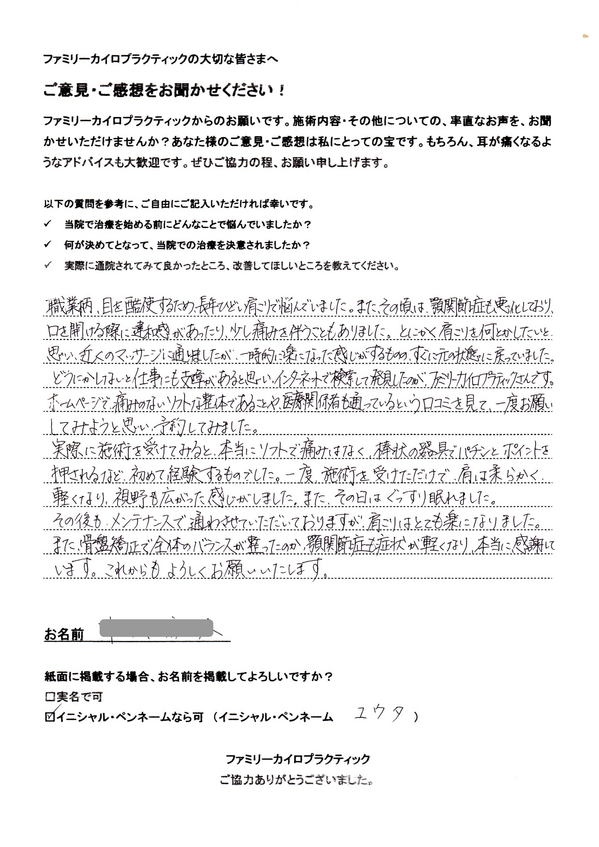 ファミリーカイロプラクティックの大切な皆さまへ
ご意見・ご感想をお聞かせください！
ファミリーカイロプラクティックからのお願いです。施術内容・その他についての、率直なお声を、お聞
かせいただけませんか？あなた様のご意見・ご感想は私にとっての宝です。もちろん、耳が痛くなるよ
うなアドバイスも大歓迎です。ぜひご協力の程、お願い申し上げます。
以下の質問を参考に、ご自由にご記入いただければ幸いです。
✓ 当院で治療を始める前にどんなことで悩んでいましたか？
✓ 何が決めてとなって、当院での治療を決意されましたか？
✓ 実際に通院されてみて良かったところ、改善してほしいところを教えてください。
職業柄、目を酷使するため、長年ひどい肩こりで悩んでいました。また、その頃は、顎関節症も悪化しており、
口を開ける際に違和感があったり、少し痛みを伴うこともありました。とにかく肩こりを何とかしたいと
思い、近くのマッサージに通いましたが、一時的に楽になった感じがするものの、すぐに元の状態に戻っていました。
どうにかしないと仕事にも支障があると思い、インターネットで検索して発見したのが、ファミリーカイロプラクティックさんです。
ホームページで、痛みのないソフトな整体であることや、医療関係者も通っているという口コミを見て、一度お願い
してみようと思い、予約してみました。
実際に施術を受けてみると、本当にソフトで痛みはなく、棒状の器具でパチンとポイントを
押されるなど、初めて経験するものでした。一度、施術を受けただけで、肩は柔らかく、
軽くなり、視野も広がった感じがしました。また、その日はぐっすり眠れました。
その後も、メンテナンスで通わさせていただいておりますが、肩こりはとても楽になりました。
また、骨盤矯正で全体のバランスが整ったのか、顎関節症も症状が軽くなり、本当に感謝して
います。これからもよろしくお願いいたします。
お名前
紙面に掲載する場合、お名前を掲載してよろしいですか？
□実名で可
☑イニシャル・ペンネームなら可（イニシャル・ペンネーム ユウタ ）
ファミリーカイロプラクティック
ご協力ありがとうございました。